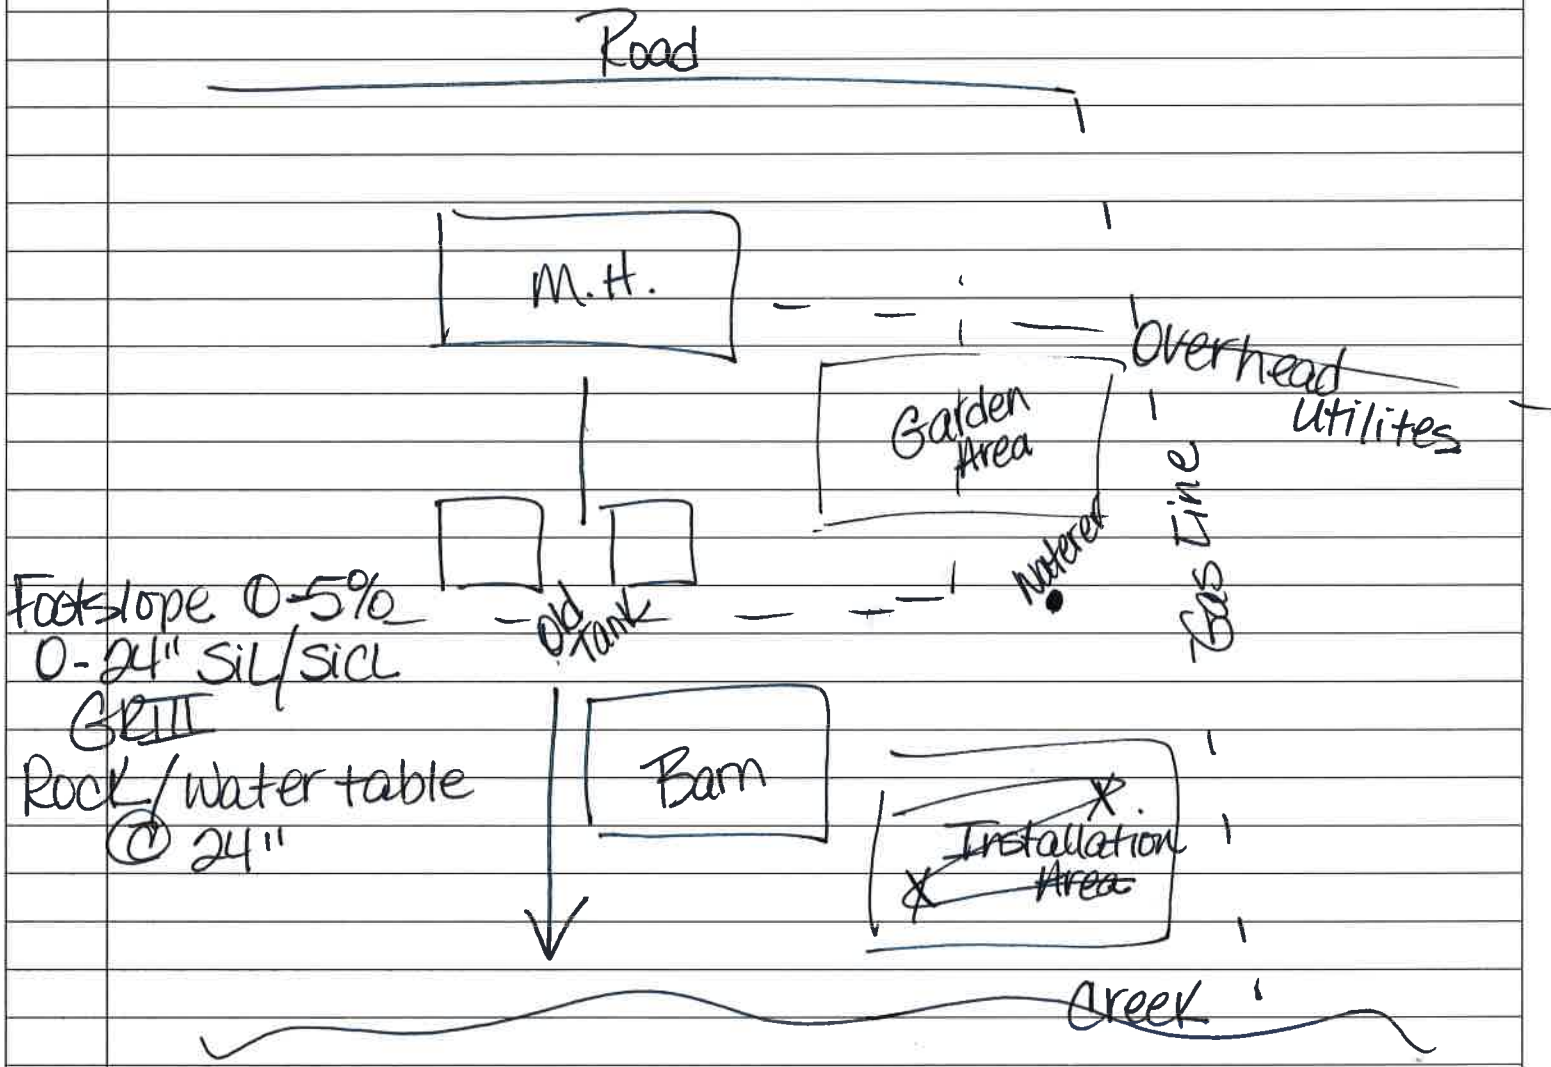 Road
M.H.
Overhead
Utilites
Garden
Area
Gas Line
Waterer
Old
Tank
Footslope 0-5%
0-24" SiL/SiCL
GRIII
Rock/Water table
@ 24"
Barn
X
Installation
X
Area
Creek